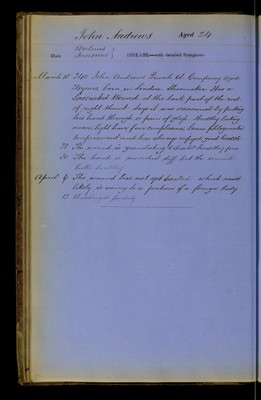 John Andrews Aged 24
Wounds
Date DISEASE—with detailed Symptoms
March 18 John Andrews Private A. Company
born in London, Shoemaker. Has a
Lacerated Wound of the back part of the
of right thumb 3 days old was occasioned by putting
his hand through a pane of glass. Healthy looking
man, light hair fair complexion
temperament and has always enjoyed good health
21 The wound is granulating & doesn't
30 The hand is somewhat stiff but the wound
looks healthy
April 9 The wound has not yet healed which most
likely is owing to a presence of a foreign body
12 Discharged for duty